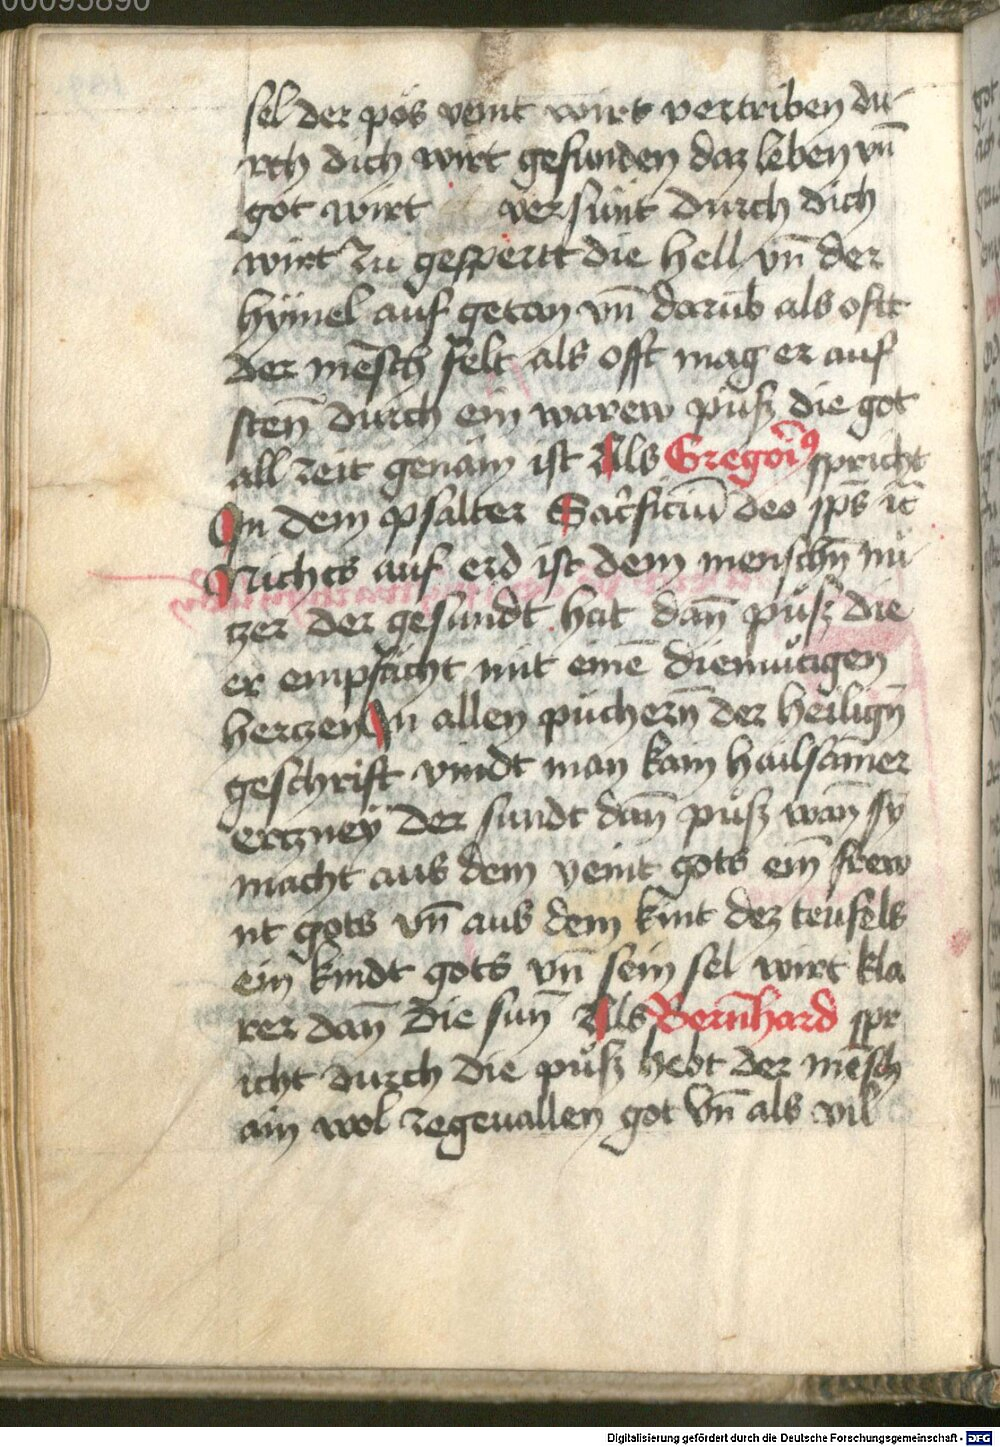 00095890
sel der pös veint wirt vertriben du
rch dich wirt gefunden daz leben vn̄
got wirt versünt durch dich
wirt zu gesperrt die hell vn̄ der
hÿmel auf getan vn̄ darūb als offt
der mēsch felt als offt mag er auf
sten̄ durch ein warew pu̇ß die got
all zeit genäm ist Als Gregori9 spricht
In dem psalter Sac̄ficiū deo sp̄s ic̄
Nichts auf erd ist dem menschn̄ nü
tzer der gesundt hat dan̄ püß die
er empfächt mit einē diemütigen
hertzen In allen püchern̄ der heilign̄
geschrift vindt man kain hailsāmer
ertzneÿ der sundt dan̄ püß wan̄ sÿ
macht aus dem veint gots ein̄ frew
nt gots vn̄ aus dem kint dez teüfels
ein kindt gots vn̄ sein sel wirt kla
rer dan̄ die sun̄ Als Bern̄hard spr
icht durch die püß hebt der mēsch
ain wol zegeuallen got vn̄ als vil
Digitalisierung gefördert durch die Deutsche Forschungsgemeinschaft - DFG